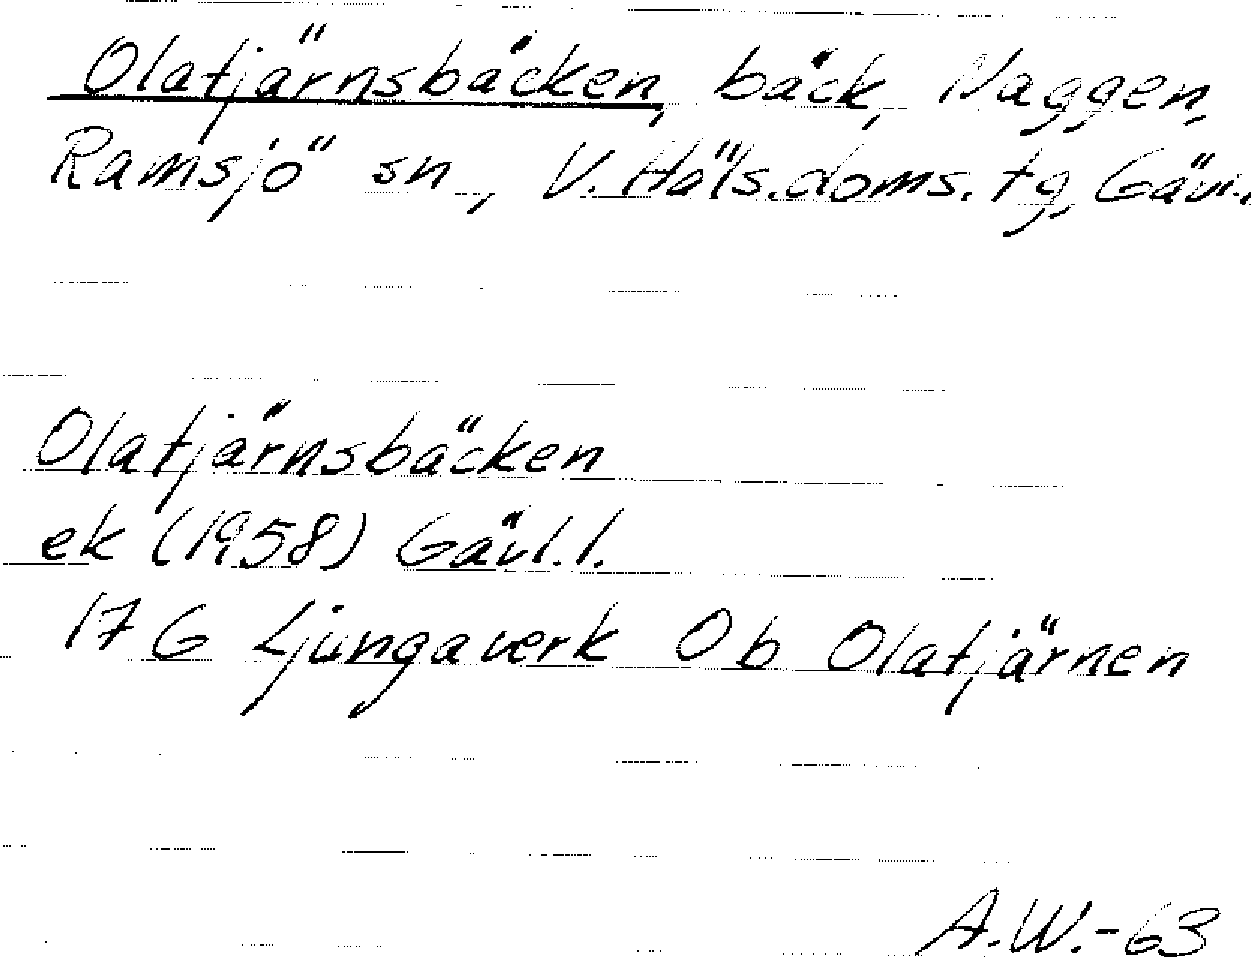 Olatjärnsbäcken, bäck, Naggen,
Ramsjö sn., V. Häls. doms. tg, Gävl.
Olatjärnsbäcken
ek (1958) Gävl. l.
17 G Ljungaverk Ob Olatjärnen
A.W.-63